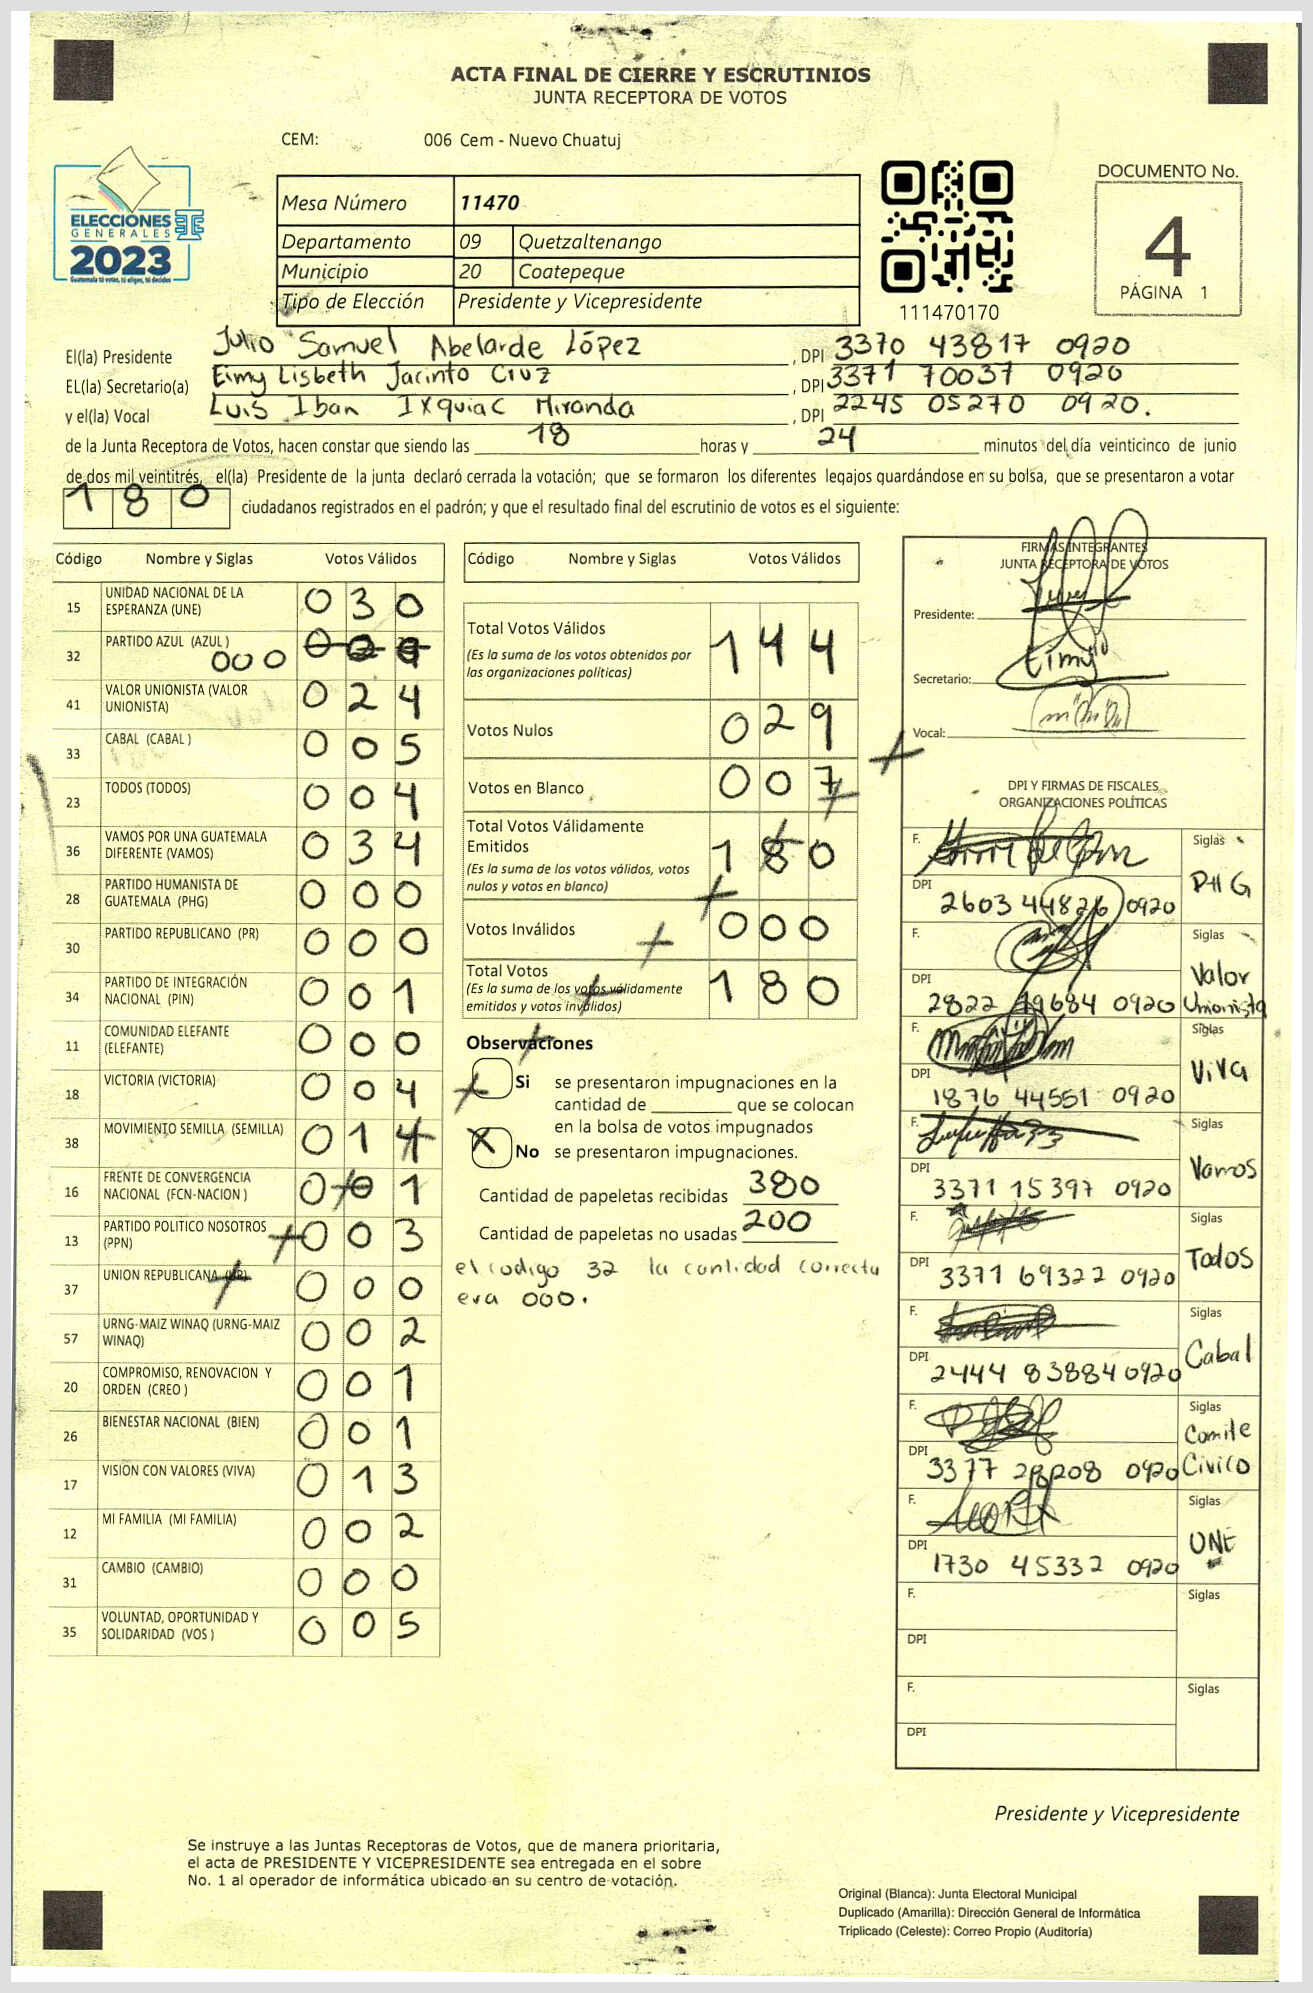 ACTA FINAL DE CIERRE Y ESCRUTINIOS
JUNTA RECEPTORA DE VOTOS
CEM: 006 Cem - Nuevo Chuatuj
ELECCIONES
GENERALES
2023
Guatemala tú votas, tú eliges, tú decides
Mesa Número 11470
Departamento 09 Quetzaltenango
Municipio 20 Coatepeque
Tipo de Elección Presidente y Vicepresidente
111470170
DOCUMENTO No.
4
PÁGINA 1
El(la) Presidente Julio Samuel Abelarde López , DPI 3370 43817 0920
EL(la) Secretario(a) Eimy Lisbeth Jacinto Cruz , DPI 3371 70037 0920
y el(la) Vocal Luis Iban Ixquiac Miranda , DPI 2245 05270 0920.
de la Junta Receptora de Votos, hacen constar que siendo las 18 horas y 24 minutos del día veinticinco de junio
de dos mil veintitrés, el(la) Presidente de la junta declaró cerrada la votación; que se formaron los diferentes legajos guardándose en su bolsa, que se presentaron a votar
180 ciudadanos registrados en el padrón; y que el resultado final del escrutinio de votos es el siguiente:
Código Nombre y Siglas Votos Válidos
15 UNIDAD NACIONAL DE LA ESPERANZA (UNE) 030
32 PARTIDO AZUL (AZUL ) 000
41 VALOR UNIONISTA (VALOR UNIONISTA) 024
33 CABAL (CABAL ) 005
23 TODOS (TODOS) 004
36 VAMOS POR UNA GUATEMALA DIFERENTE (VAMOS) 034
28 PARTIDO HUMANISTA DE GUATEMALA (PHG) 000
30 PARTIDO REPUBLICANO (PR) 000
34 PARTIDO DE INTEGRACIÓN NACIONAL (PIN) 001
11 COMUNIDAD ELEFANTE (ELEFANTE) 000
18 VICTORIA (VICTORIA) 004
38 MOVIMIENTO SEMILLA (SEMILLA) 014
16 FRENTE DE CONVERGENCIA NACIONAL (FCN-NACION ) 001
13 PARTIDO POLITICO NOSOTROS (PPN) 003
37 UNION REPUBLICANA (UR) 000
57 URNG-MAIZ WINAQ (URNG-MAIZ WINAQ) 002
20 COMPROMISO, RENOVACION Y ORDEN (CREO ) 001
26 BIENESTAR NACIONAL (BIEN) 001
17 VISION CON VALORES (VIVA) 013
12 MI FAMILIA (MI FAMILIA) 002
31 CAMBIO (CAMBIO) 000
35 VOLUNTAD, OPORTUNIDAD Y SOLIDARIDAD (VOS ) 005
Código Nombre y Siglas Votos Válidos
Total Votos Válidos 144
(Es la suma de los votos obtenidos por
las organizaciones politicas)
Votos Nulos 029
Votos en Blanco 007
Total Votos Válidamente
Emitidos 180
(Es la suma de los votos válidos, votos
nulos y votos en blanco)
Votos Inválidos 000
Total Votos 180
(Es la suma de los votos válidamente
emitidos y votos inválidos)
Observaciones
Si se presentaron impugnaciones en la
cantidad de ________ que se colocan
en la bolsa de votos impugnados
X No se presentaron impugnaciones.
Cantidad de papeletas recibidas 380
Cantidad de papeletas no usadas 200
el codigo 32 la cantidad correcta
era 000.
FIRMAS INTEGRANTES
JUNTA RECEPTORA DE VOTOS
Presidente:
Secretario: Eimy
Vocal:
DPI Y FIRMAS DE FISCALES
ORGANIZACIONES POLÍTICAS
F. Siglas PHG
DPI 2603 44826 0920
F. Siglas Valor Unionista
DPI 2822 19684 0920
F. Siglas ViVa
DPI 1876 44551 0920
F. Siglas Vamos
DPI 3371 15397 0920
F. Siglas Todos
DPI 3371 69322 0920
F. Siglas Cabal
DPI 2444 83884 0920
F. Siglas Comite Civico
DPI 3377 28208 0920
F. Siglas UNE
DPI 1730 45332 0920
F. Siglas
DPI
F. Siglas
DPI
Presidente y Vicepresidente
Se instruye a las Juntas Receptoras de Votos, que de manera prioritaria,
el acta de PRESIDENTE Y VICEPRESIDENTE sea entregada en el sobre
No. 1 al operador de informática ubicado en su centro de votación.
Original (Blanca): Junta Electoral Municipal
Duplicado (Amarilla): Dirección General de Informática
Triplicado (Celeste): Correo Propio (Auditoría)